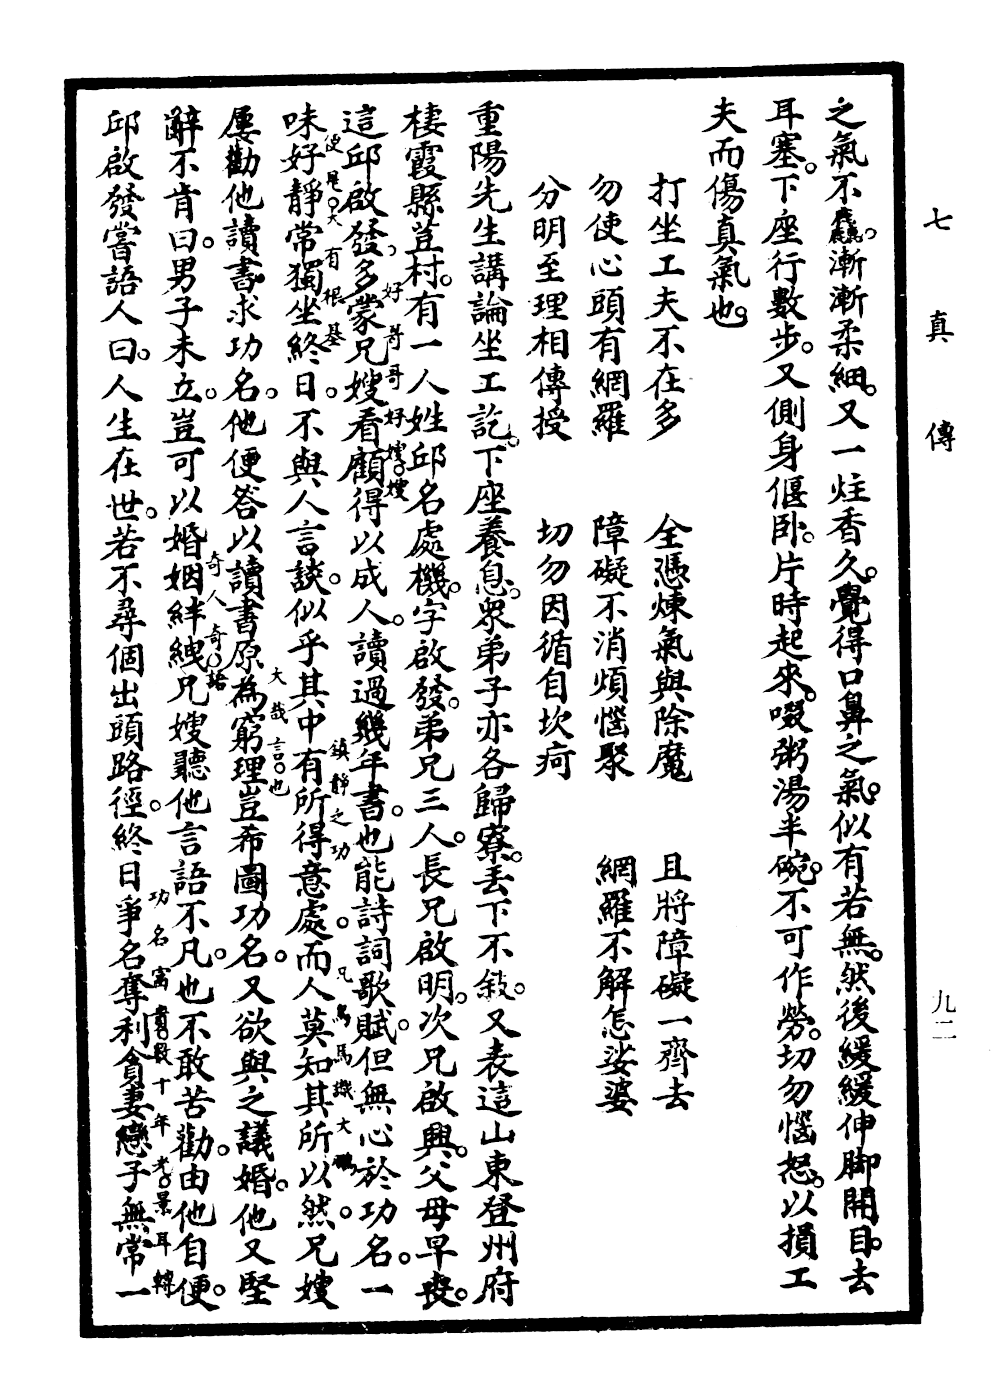 七真傳
九二
之氣不麤。漸漸柔細。又一炷香久。覺得口鼻之氣。似有若無。然後緩緩伸脚開目。去
耳塞。下座行數步。又側身偃卧。片時起來。啜粥湯半碗。不可作勞。切勿惱怒。以損工
夫而傷真氣也。
打坐工夫不在多　全憑煉氣與除魔　且將障礙一齊去
勿使心頭有網羅　障礙不消煩惱聚　網羅不解怎娑婆
分明至理相傳授　切勿因循自坎疴
重陽先生講論坐工訖。下座養息。眾弟子亦各歸寮。丟下不敍。又表這山東登州府
棲霞縣荳村。有一人姓邱名處機。字啟發。弟兄三人。長兄啟明。次兄啟興。父母早喪。
好哥哥好嫂嫂
這邱啟發。多蒙兄嫂看顧得以成人。讀過幾年書。也能詩詞歌賦。但無心於功名。一
便見。大有根基　鎮靜之功　凡鳥焉識大鵬
味好靜常獨坐終日。不與人言談。似乎其中有所得意處。而人莫知其所以然。兄嫂
大哉言也
屢勸他讀書。求功名。他便答以讀書原為窮理豈希圖功名。又欲與之議婚。他又堅
奇人奇語
辭不肯曰。男子未立。豈可以婚姻絆絏兄嫂聽他言語不凡。也不敢苦勸。由他自便。
功名富貴數十年光景耳轉
邱啟發嘗語人曰。人生在世。若不尋個出頭路徑。終日爭名奪利貪妻戀子無常一